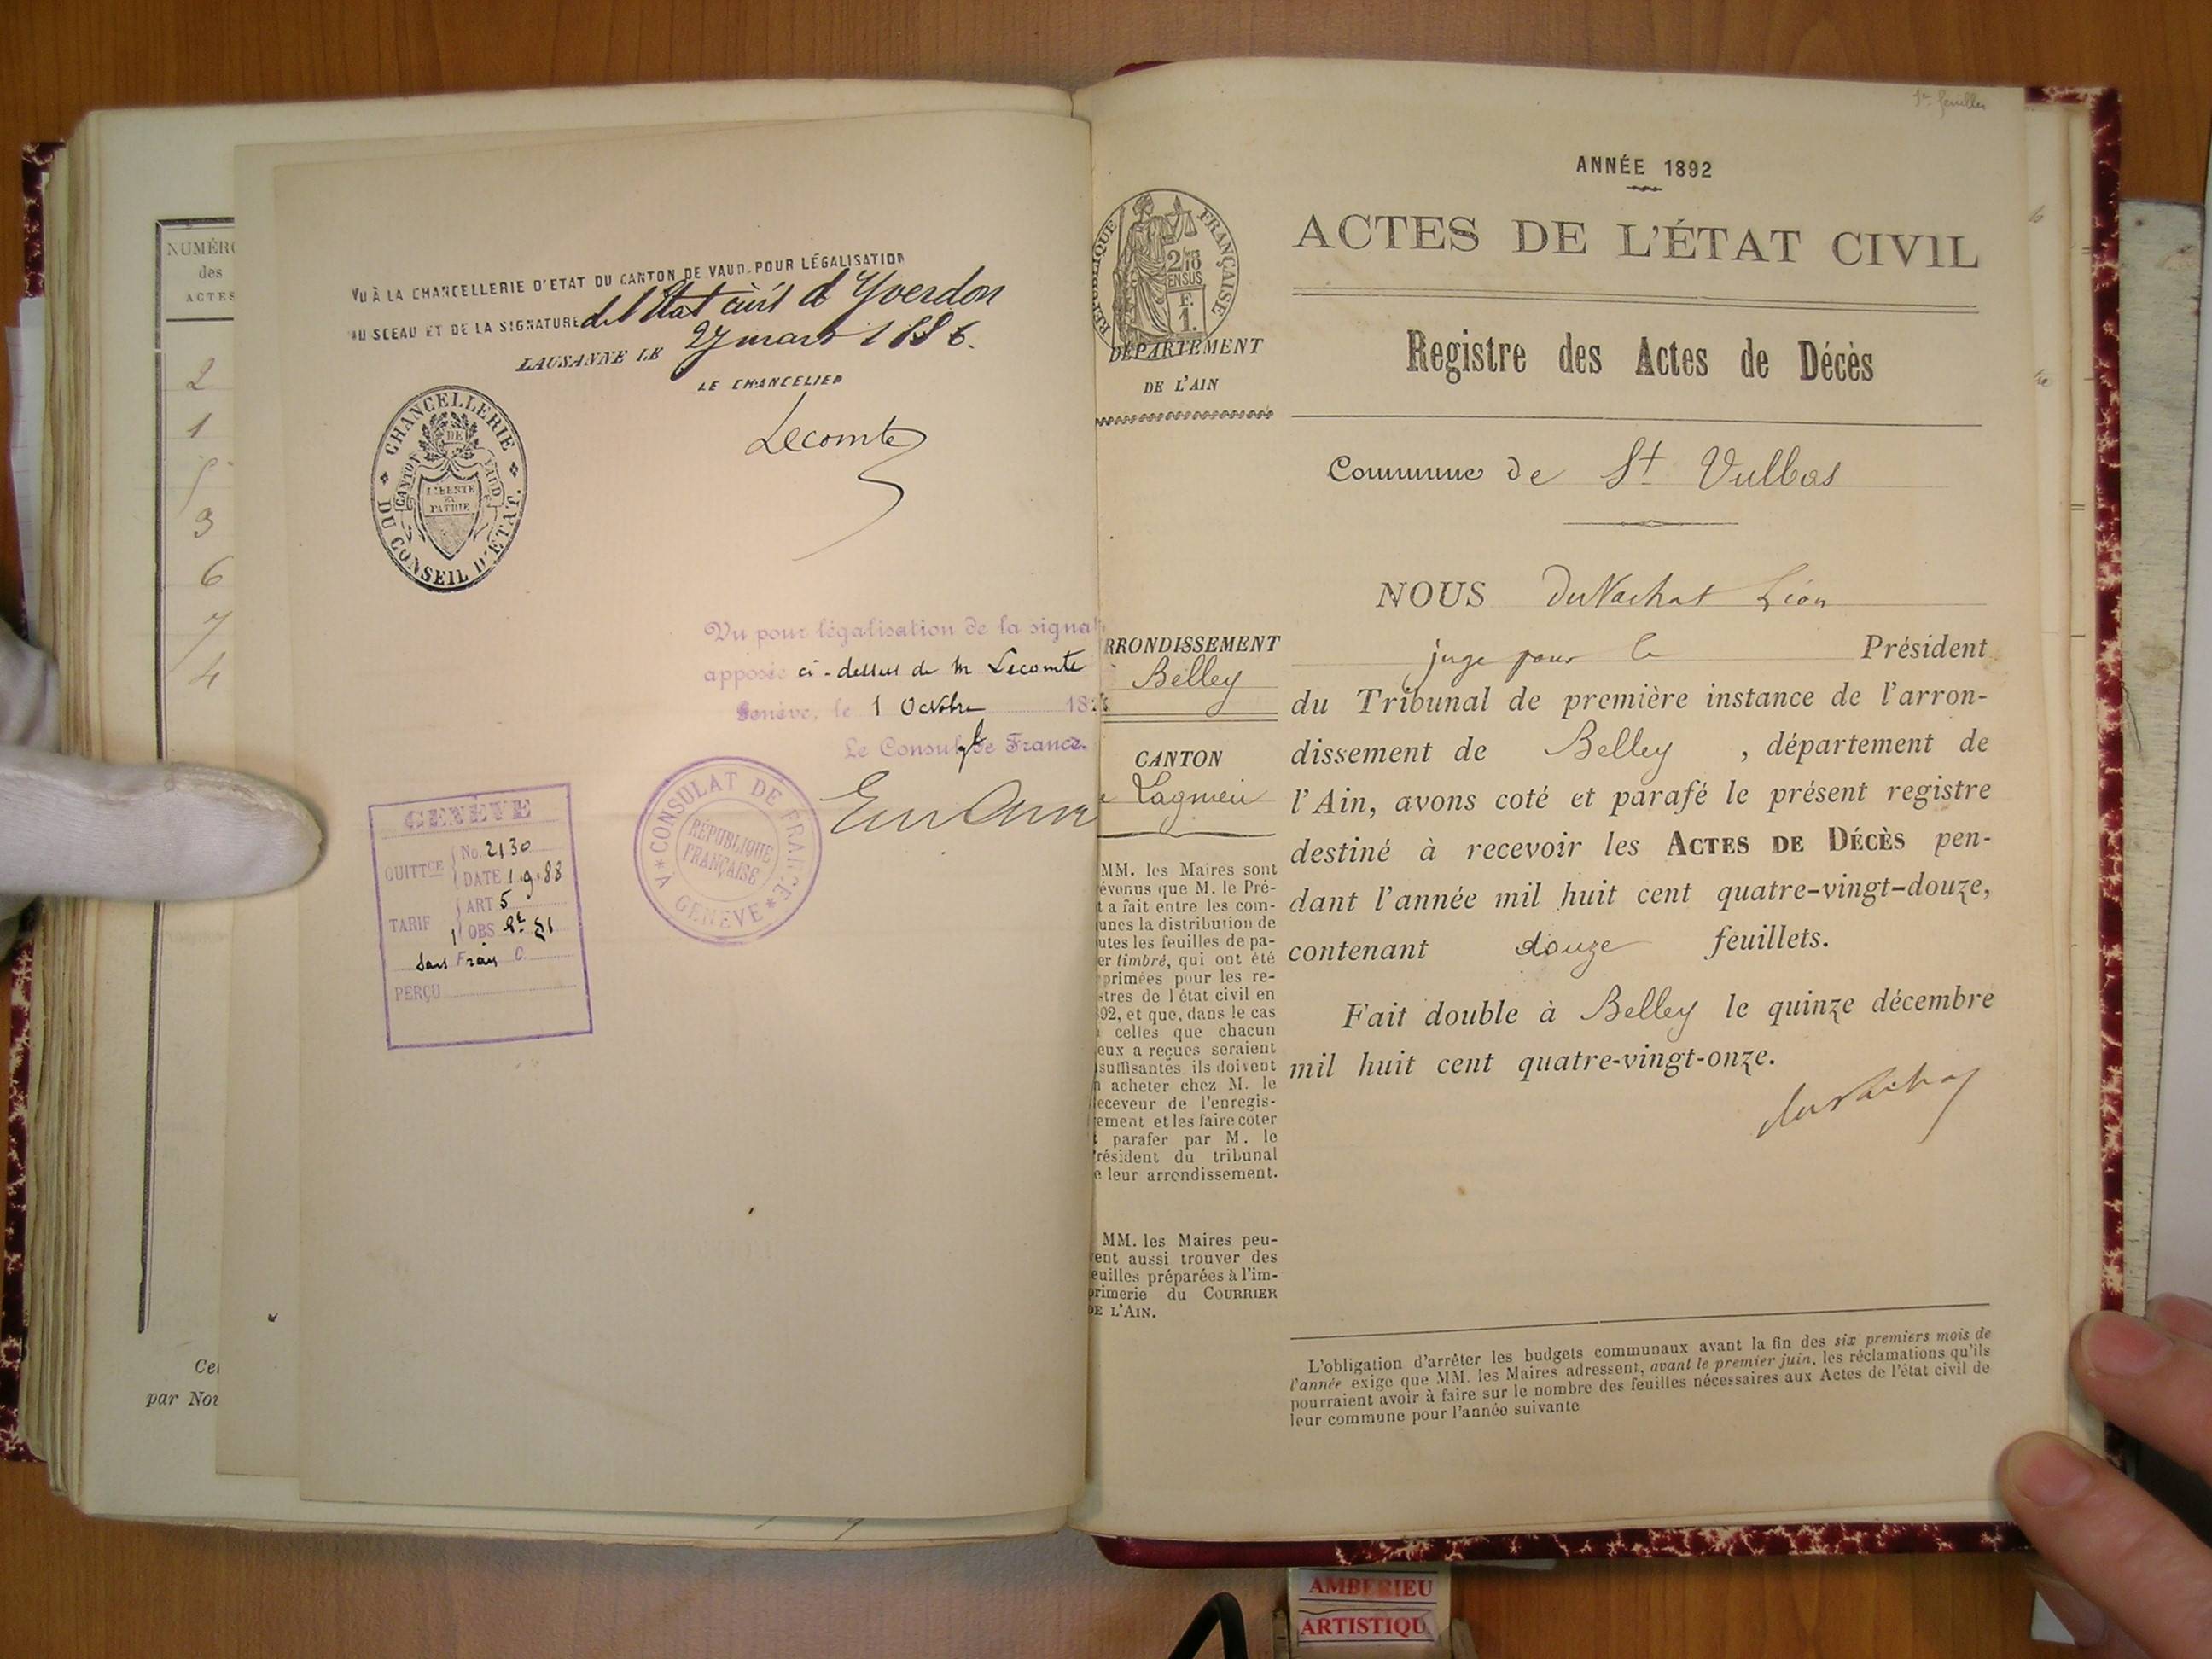 NUMÉRO
des
ACTES
2
1
5
3
6
7
4
Cer
par Nou
VU À LA CHANCELLERIE D'ETAT DU CANTON DE VAUD, POUR LÉGALISATION
DU SCEAU ET DE LA SIGNATURE de l'Etat civil d'Yverdon
LAUSANNE LE 27 mars 1886.
LE CHANCELIER
Lecomte
CHANCELLERIE
DU CONSEIL D'ETAT.
CANTON DE VAUD
LIBERTE
ET
PATRIE
Vu pour légalisation de la signat
apposée ci-dessus de M Lecomte
Genève, le 1 Octobre 18
Le Consul de France.
CONSULAT DE FRANCE
A GENÈVE
RÉPUBLIQUE
FRANÇAISE
GENÈVE
QUITTCE No. 2130
DATE 1.9.88
TARIF ART 5
OBS
Sans Frais
PERÇU
1re feuillet
ANNÉE 1892
ACTES DE L'ÉTAT CIVIL
Registre des Actes de Décès
Commune de St Vulbas
RÉPUBLIQUE FRANÇAISE
2/10
EN SUS
F.
1.
DÉPARTEMENT
DE L'AIN
RRONDISSEMENT
Belley
CANTON
Lagnieu
MM. les Maires sont
évenus que M. le Pré-
t a fait entre les com-
unes la distribution de
utes les feuilles de pa-
er timbré, qui ont été
primées pour les re-
stres de l'état civil en
92, et que, dans le cas
celles que chacun
eux a reçues seraient
suffisantes ils doivent
n acheter chez M. le
eceveur de l'enregis-
rement et les faire coter
t parafer par M. le
résident du tribunal
e leur arrondissement.
MM. les Maires peu-
vent aussi trouver des
euilles préparées à l'im-
primerie du COURRIER
DE L'AIN.
NOUS DuVachat Léon
juge pour le Président
du Tribunal de première instance de l'arron-
dissement de Belley , département de
l'Ain, avons coté et parafé le présent registre
destiné à recevoir les ACTES DE DÉCÈS pen-
dant l'année mil huit cent quatre-vingt-douze,
contenant douze feuillets.
Fait double à Belley le quinze décembre
mil huit cent quatre-vingt-onze.
duVachat
L'obligation d'arrêter les budgets communaux avant la fin des six premiers mois de
l'année exige que MM. les Maires adressent, avant le premier juin, les réclamations qu'ils
pourraient avoir à faire sur le nombre des feuilles nécessaires aux Actes de l'état civil de
leur commune pour l'année suivante
AMBERIEU
ARTISTIQU